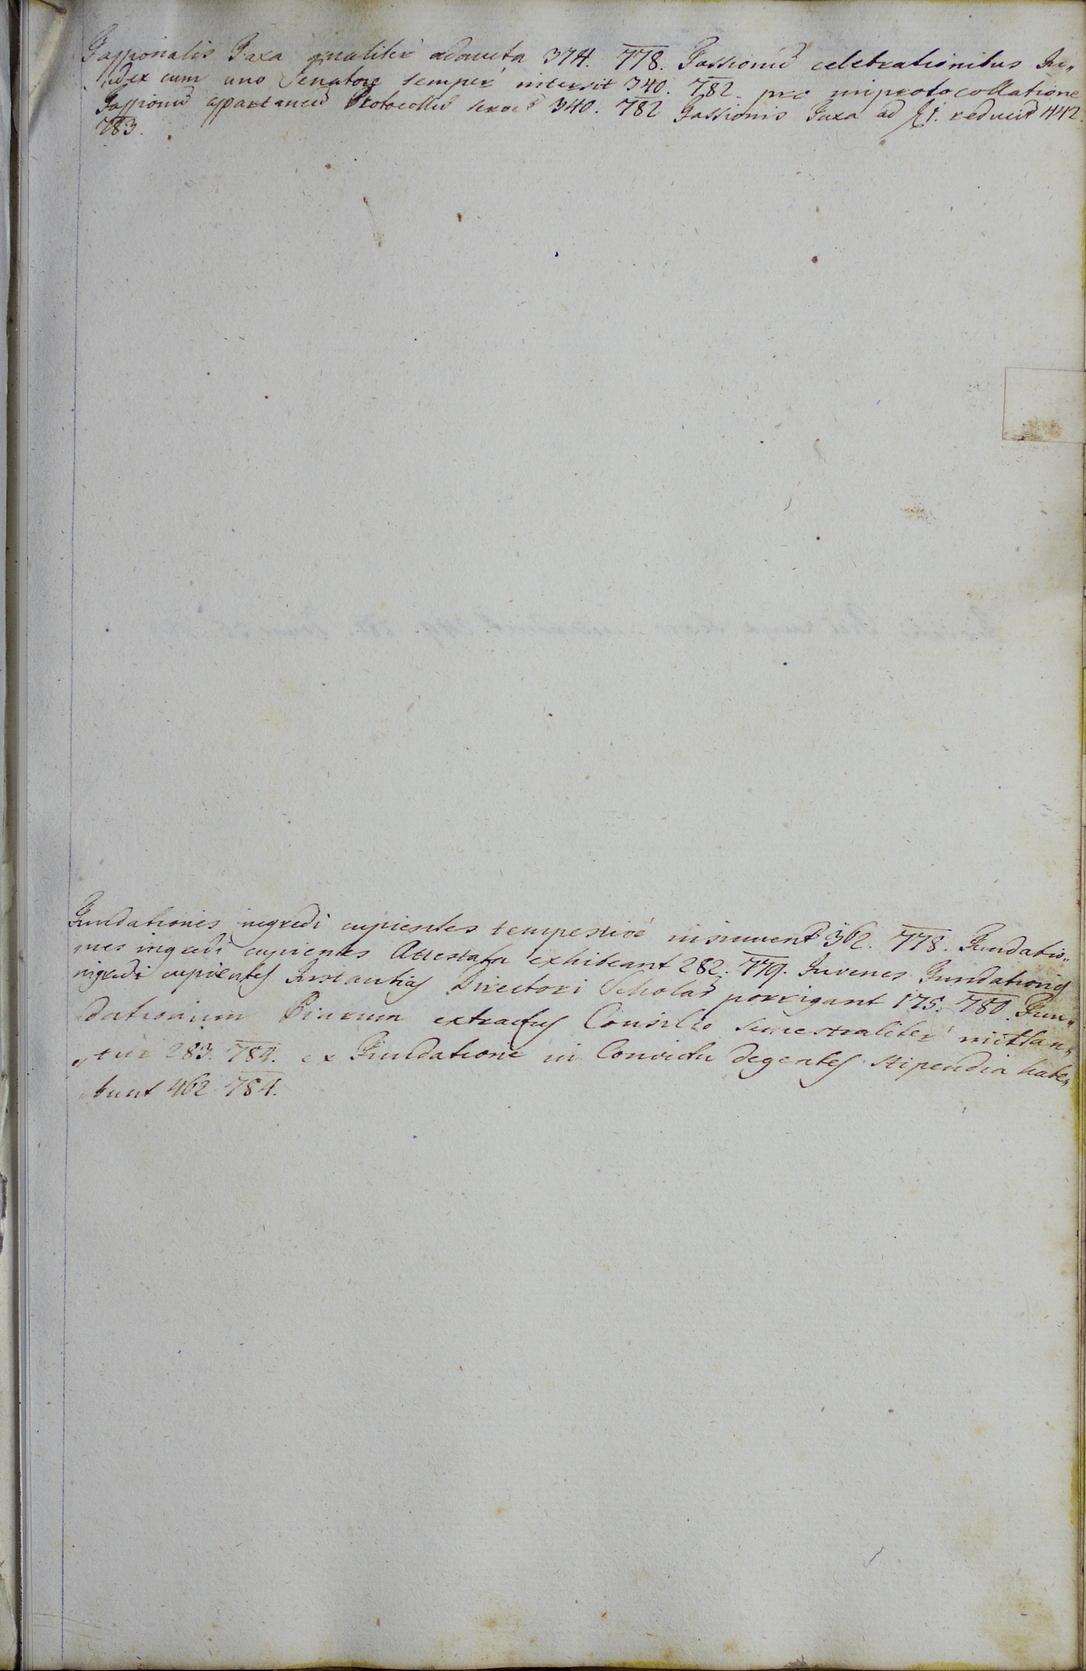 Fassionalis Taxa qualiter adaucta 374. 778. Fassionũ celebrationibus Ju„
„dex cum uno Senatore semper intersit 340. 782. pro improtocollatione
Fassionũ appartaneũ Protocollũ 340. 782 Fassionis Taxa ad f 1. reducit 442.
783.
Fundationes ingredi cupientes tempestivè insinuent 362. 778. Fundatio„
nes ingredi cupientes Attestata exhibeant 282. 779. Juvenes Fundationes
ingredi cupientes Instantias Directori Scholar porrigant 175. 780. Fun„
dationum Piarum extractus Consilio semestraliter mittan„
„tur 283. 784. ex Fundatione in Convictu degentes stipendia habe„
„bunt 462. 784.